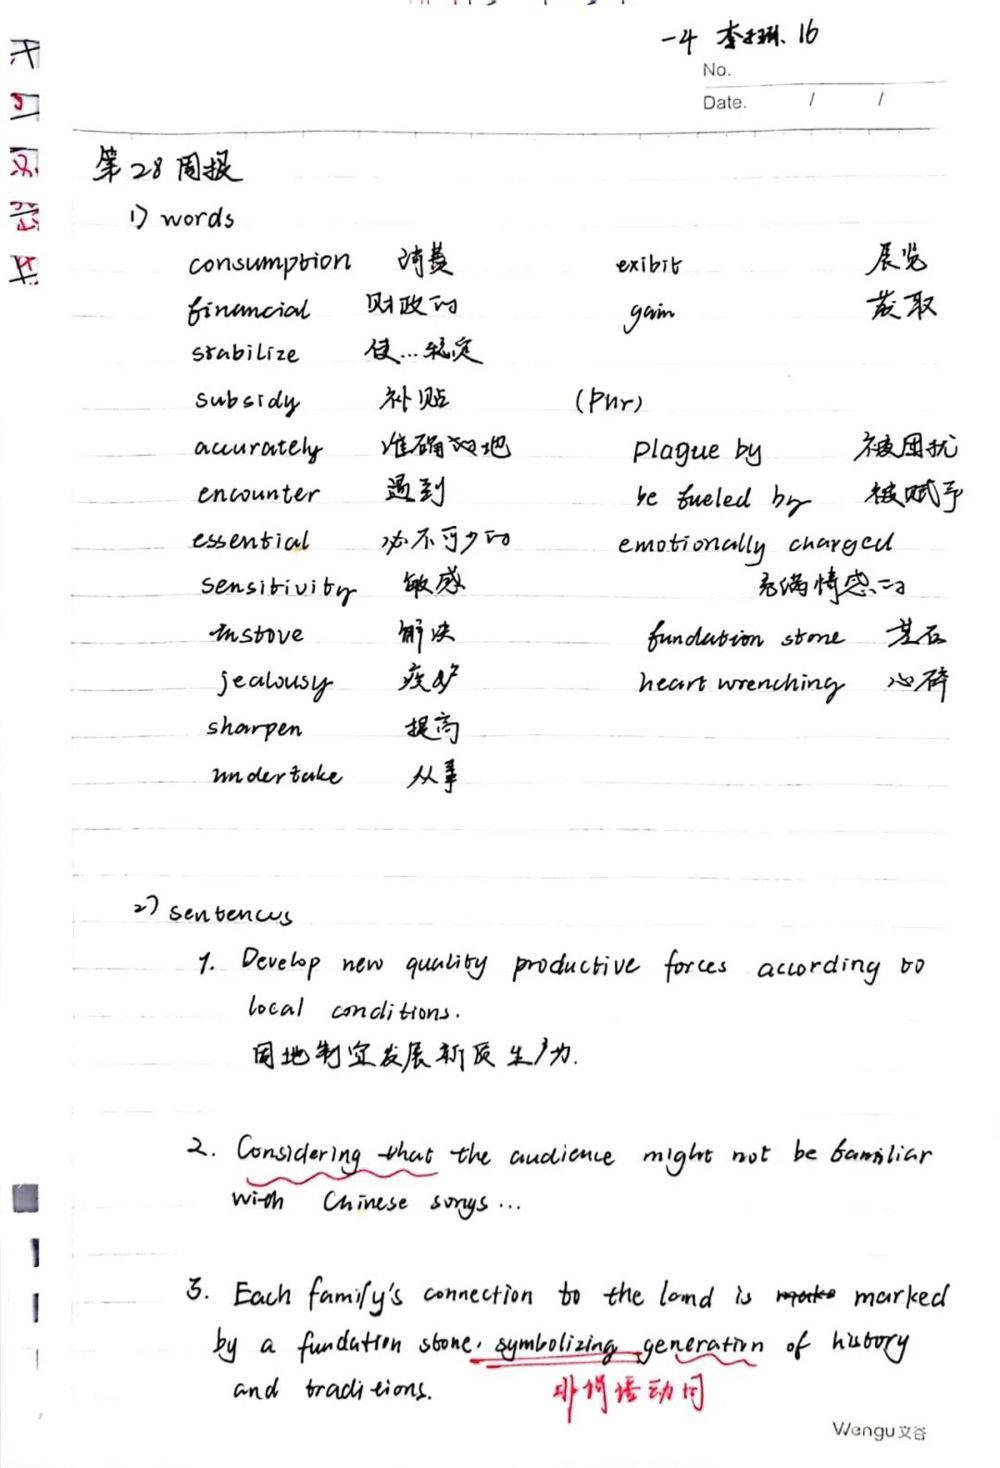 一4 李 16
No.
Date. / /
第28周报
1) words
consumption 消费 exibit 展览
financial 财政的 gain 获取
stabilize 使...稳定
subsidy 补贴 (Phr)
accurately 准确地 plague by 被困扰
encounter 遇到 be fueled by 被赋予
essential 必不可少的 emotionally charged
sensitivity 敏感 充满情感的
解决 fundation stone 基石
jealousy heart wrenching 心碎
sharpen 提高
undertake 从事
2) sentences
1. Develop new quality productive forces according to
local conditions.
因地制宜发展新质生产力.
2. Considering that the audience might not be familiar
with Chinese songs...
3. Each family's connection to the land is make marked
by a fundation stone, symbolizing generation of history
and traditions. 非谓语动词
Wengu 文谷